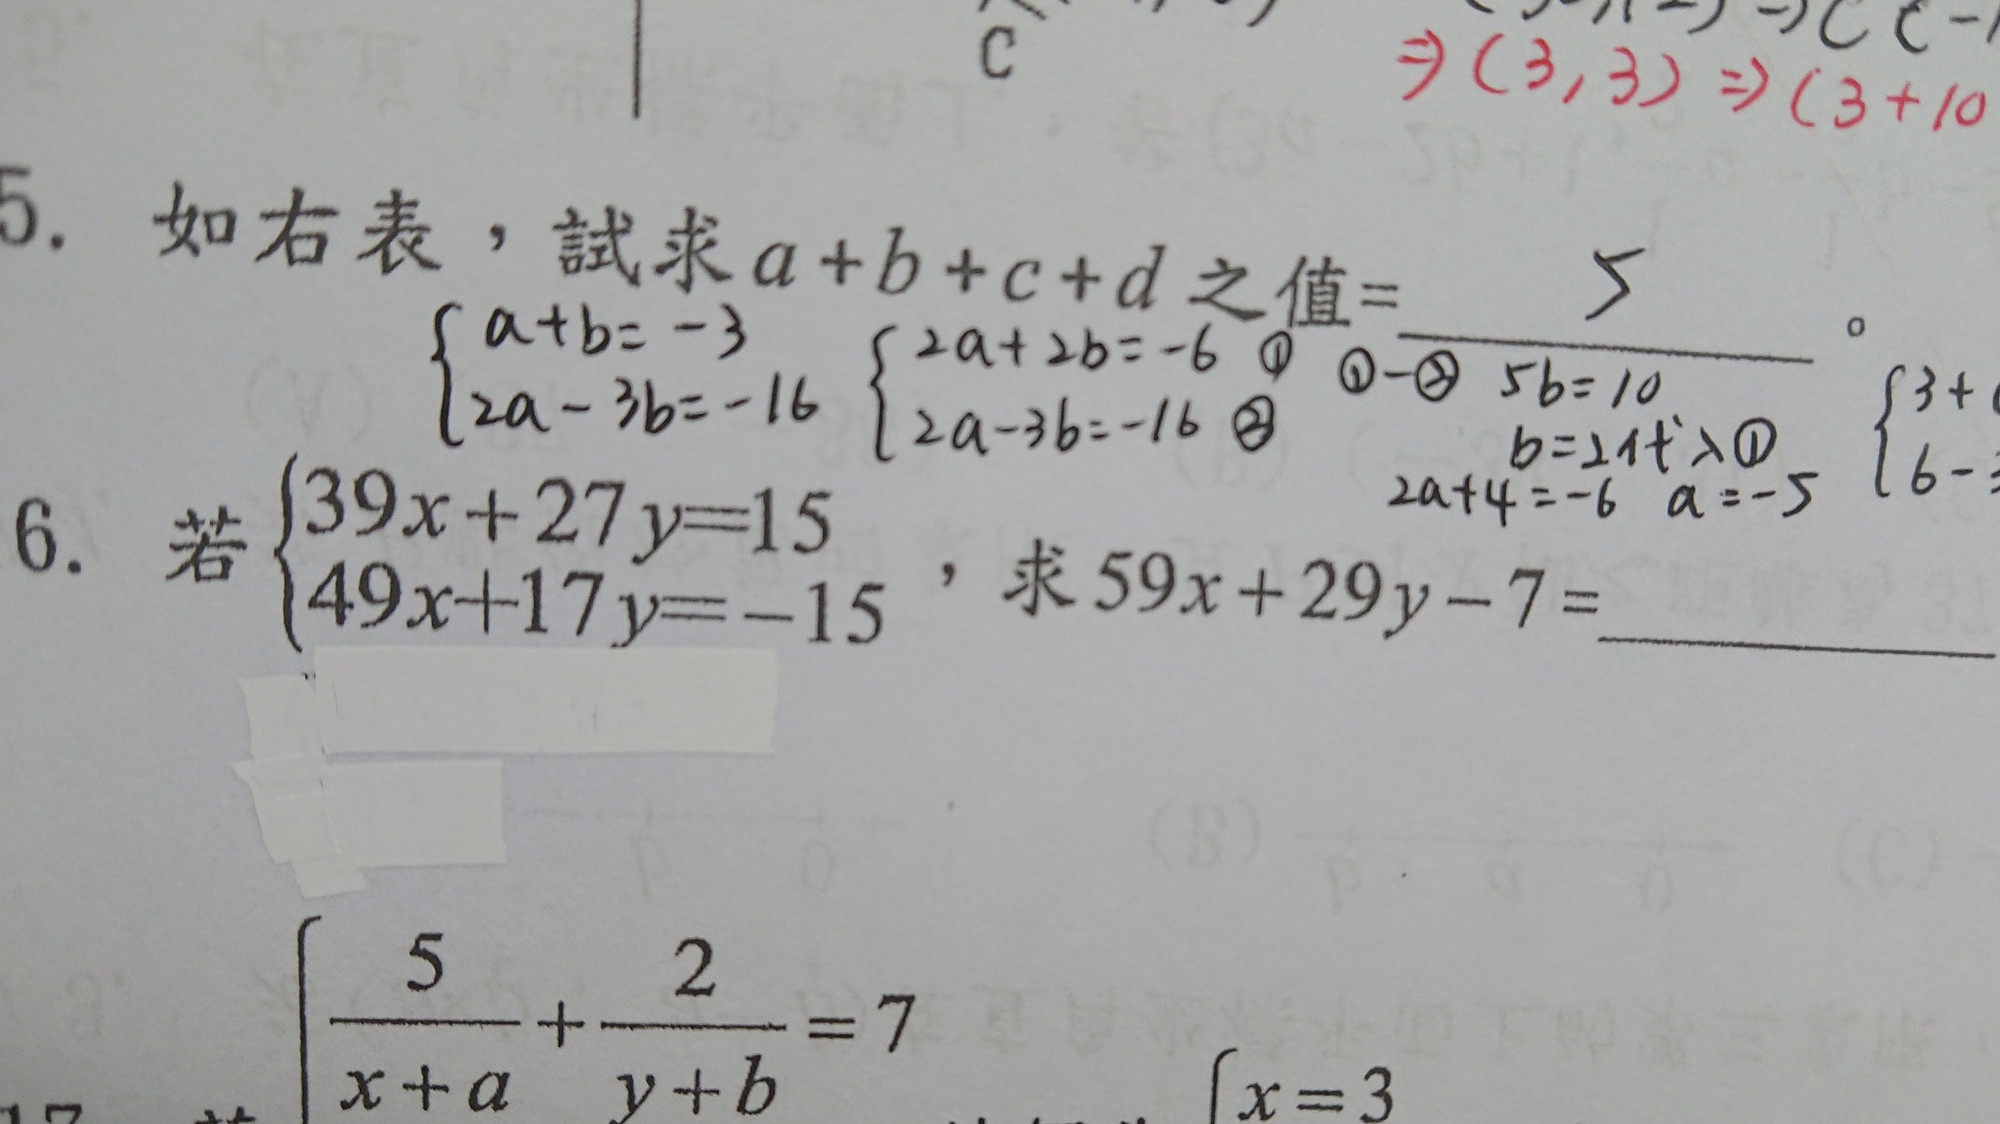 C
⇒(3,3)⇒(3+10
5. 如右表，試求a+b+c+d之值=5。
{a+b=-3
2a-3b=-16
{2a+2b=-6 ①
2a-3b=-16 ②
①-② 5b=10
b=2代入①
2a+4=-6 a=-5
{3+
6-
6. 若{39x+27y=15
49x+17y=-15，求59x+29y-7=
5/(x+a)+2/(y+b)=7
{x=3